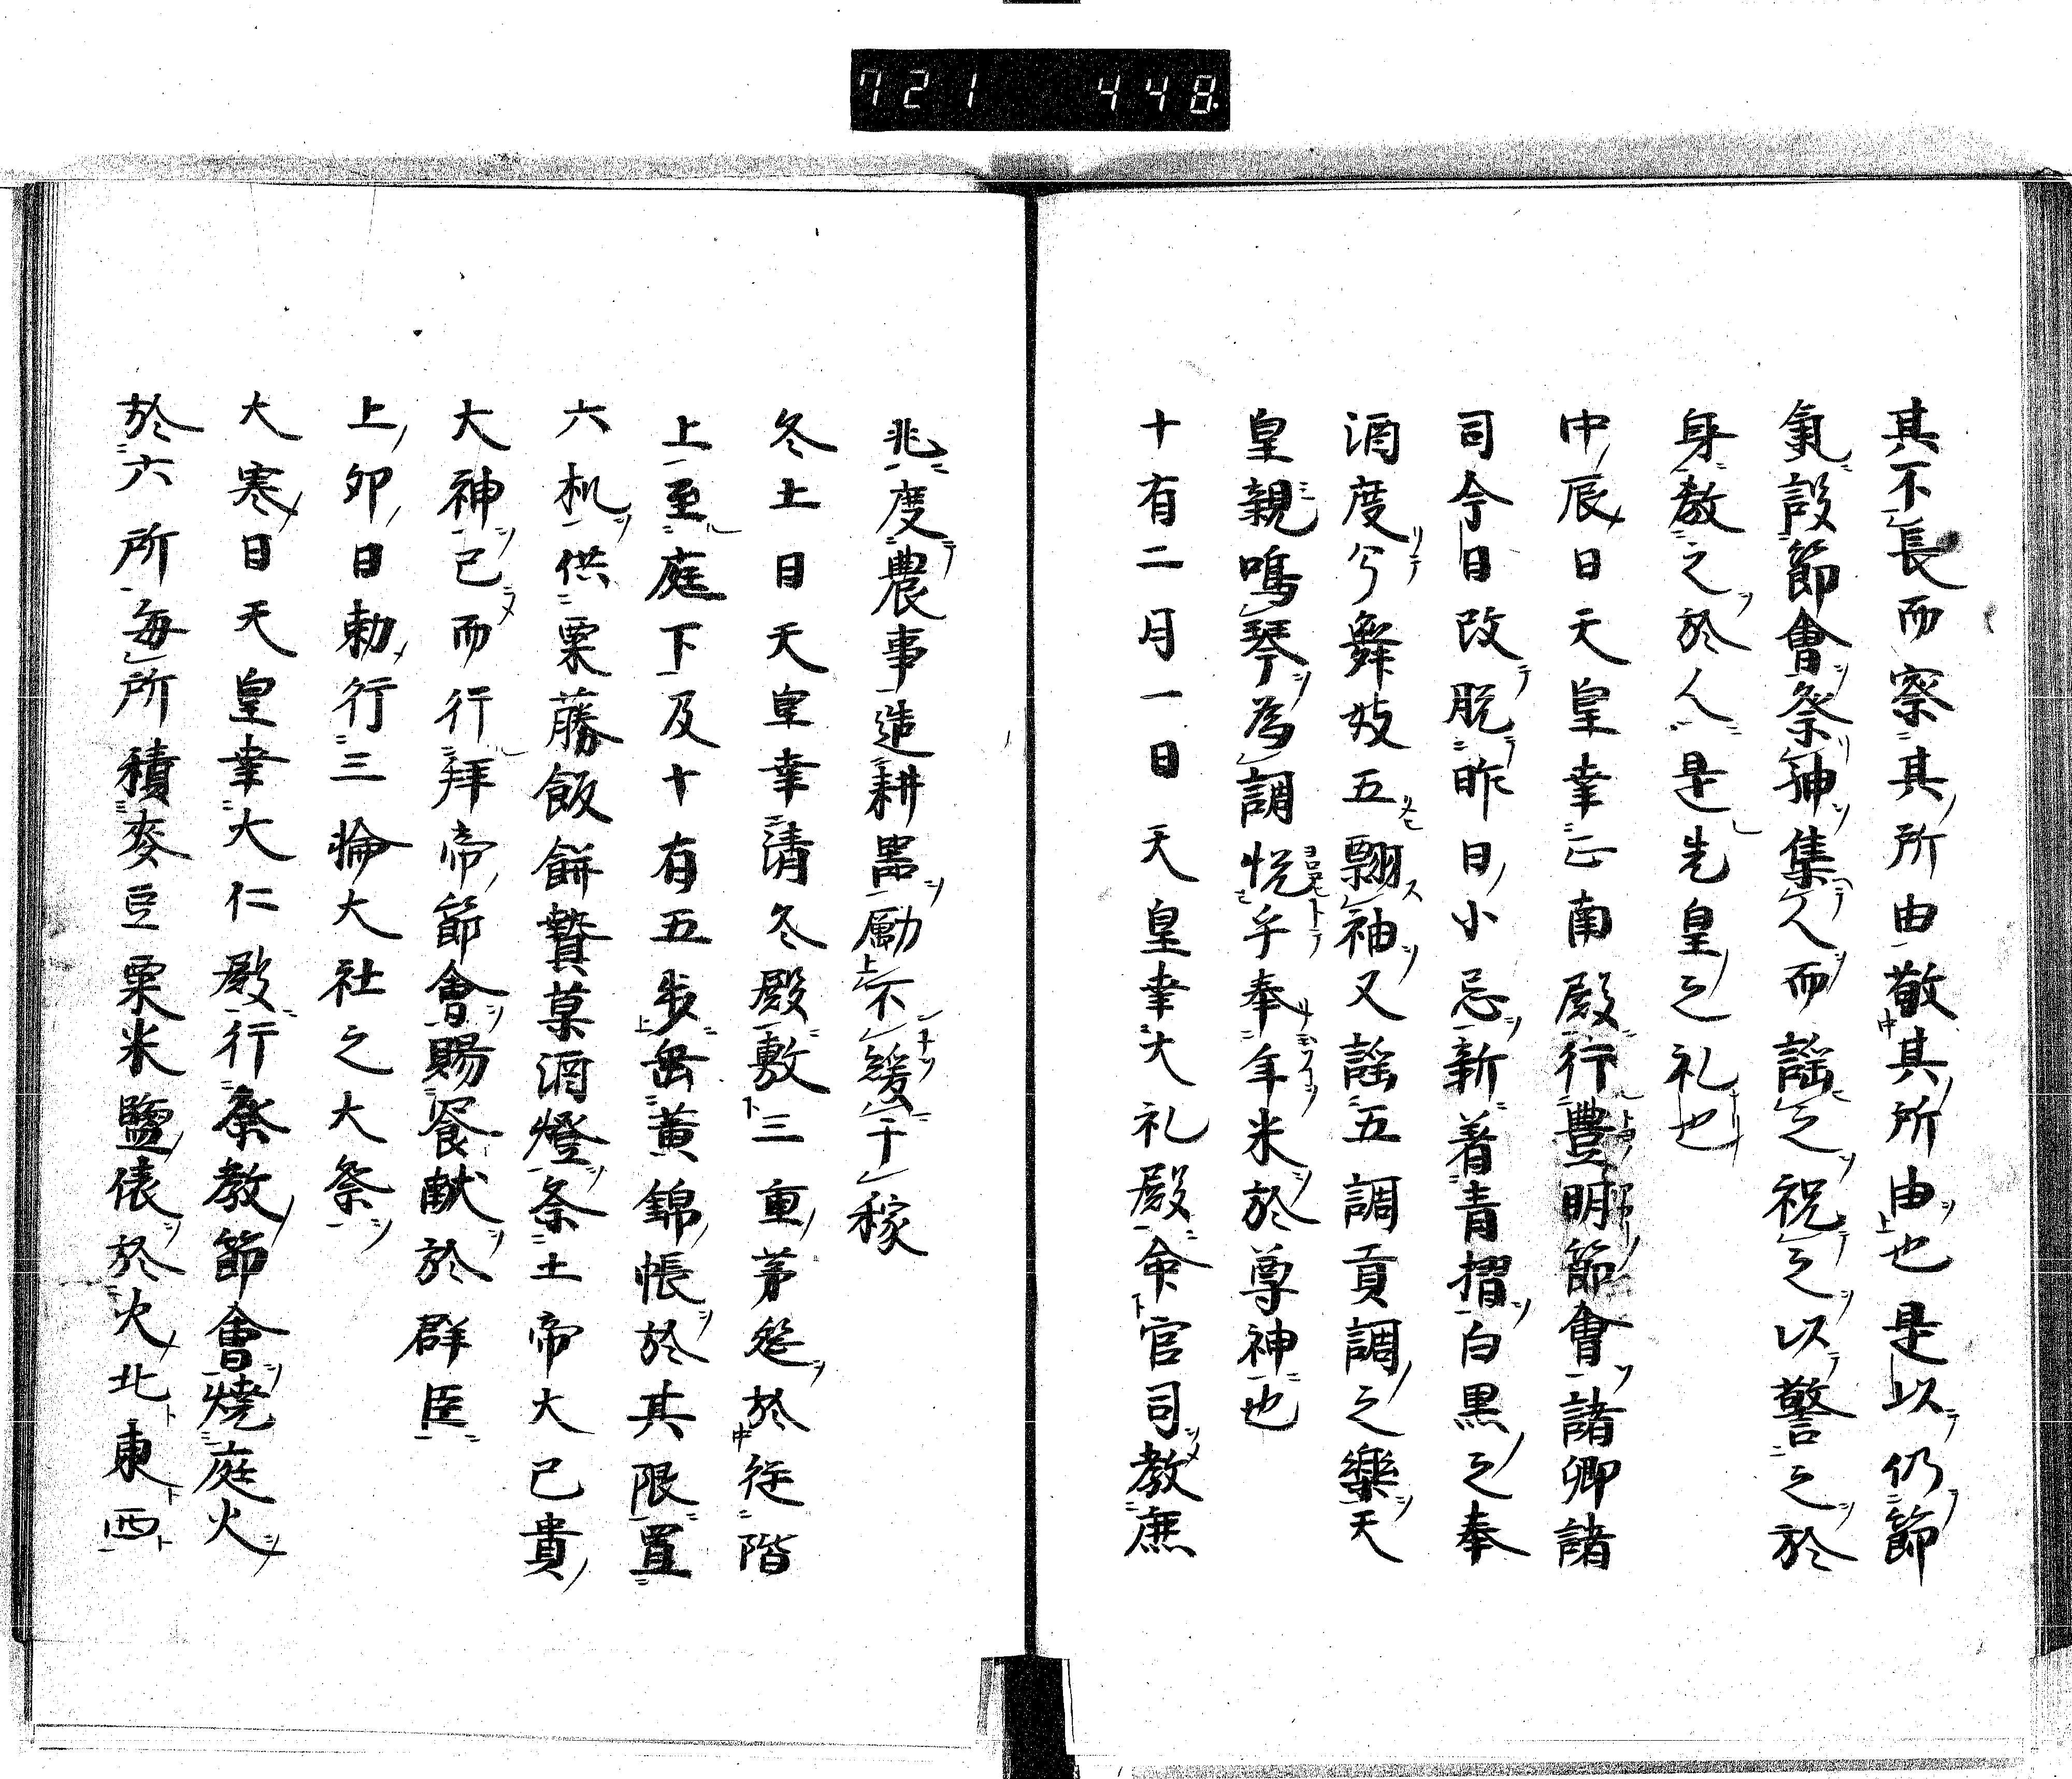 721 448.
其不長而察其所由敬其所由也是以仍節
氣設節會祭神集人而謡之祝之以警之於
身教之於人是先皇之礼也
中辰日天皇幸正南殿行豊明節會諸卿諸
司今日改脱昨日小忌新着青摺白黒之奉
酒度兮舞妓五翻袖又謡五調貢調之樂天
皇親鳴琴為調悦乎奉年米於尊神也
十有二月一日天皇幸大礼殿命官司教庶
兆度農事造耕器勵不緩于稼
冬土日天皇幸清冬殿敷三重茅筵於從階
上至庭下及十有五步缶黄錦帳於其限置
六机供粟藤飯餅贄菓酒燈祭土帝大己貴
大神已而行拜帝節會賜饗献於群臣
上卯日勅行三輪大社之大祭
大寒日天皇幸大仁殿行祭教節會燒庭火
於六所毎所積麥豆粟米鹽俵於火北東西